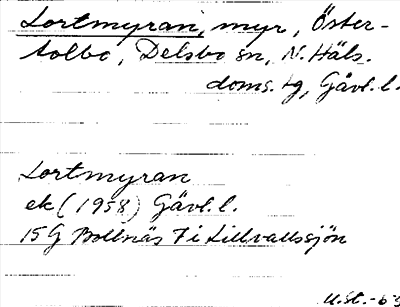 Lortmyran, myr, Öster-
tolbo, Delsbo sn, N. Häls.
doms. tg, Gävl. l.
Lortmyran
ek (1958) Gävl. l.
15G Bollnäs 7 i Lillvallssjön
U. St. -63